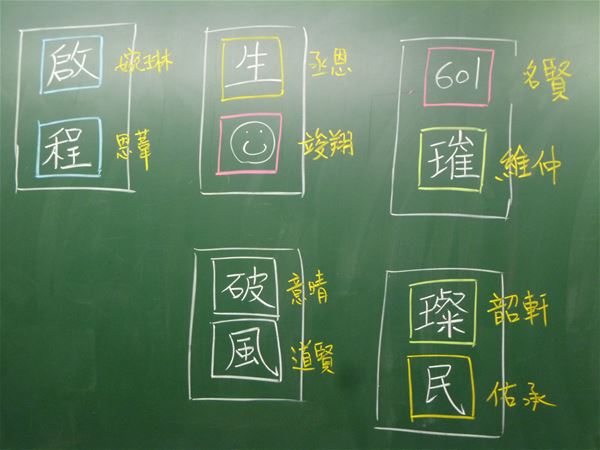 啟 婉琳
程 恩葦
生 丞恩
竣翔
601 名賢
璀 維仲
破 意晴
風 道賢
璨 韶軒
民 佑承